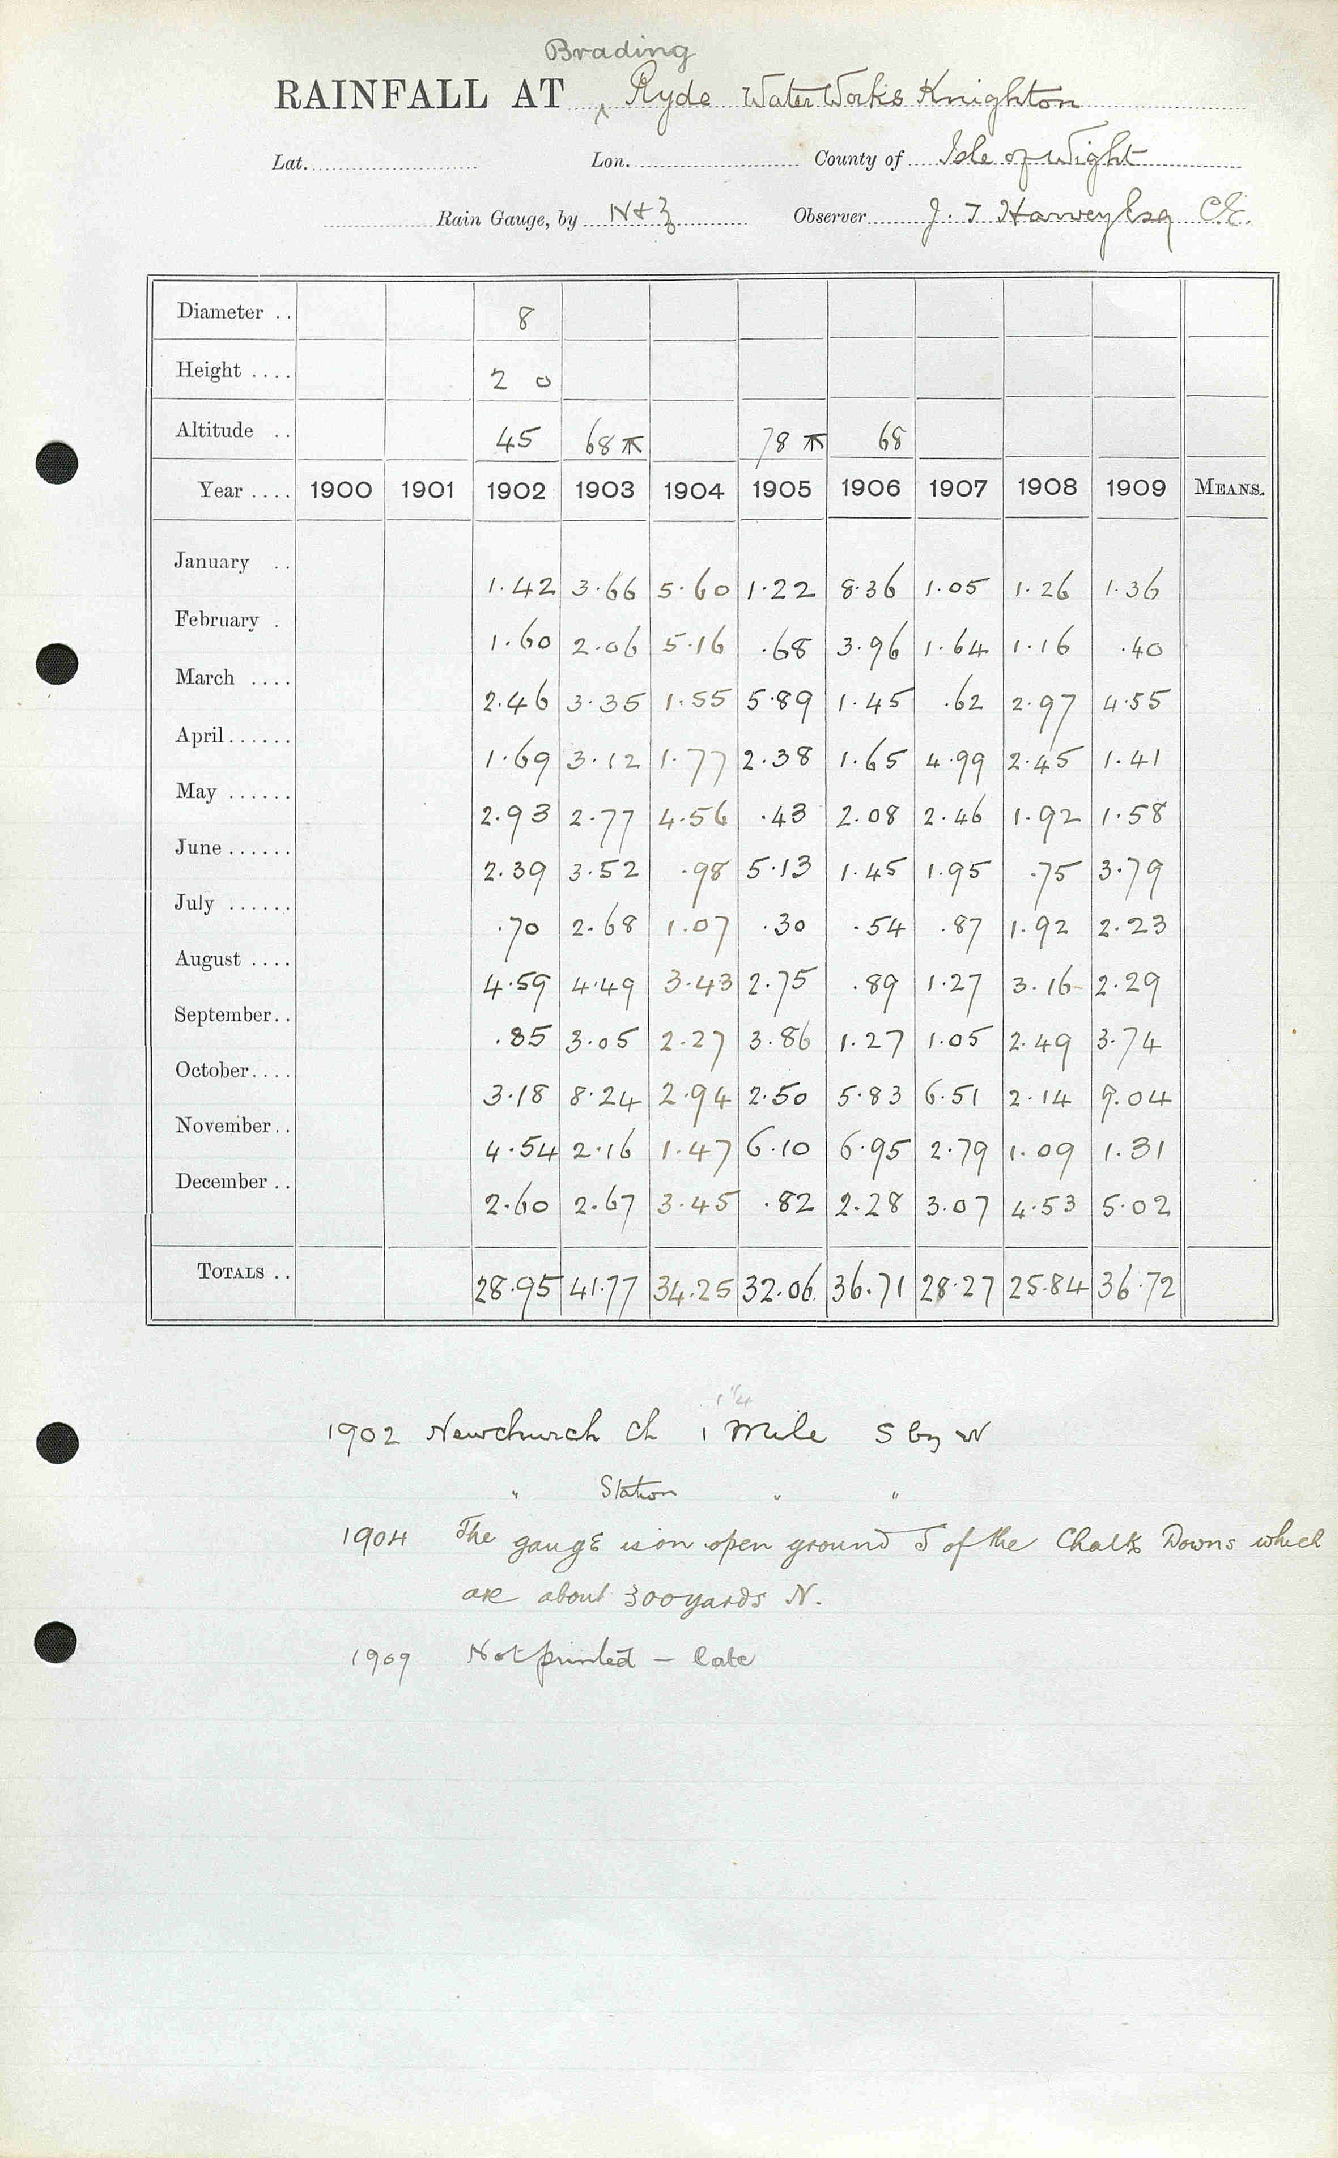 Brading
RAINFALL AT Ryde Water Works Knighton
Lat. Lon. County of Isle of Wight
Rain Gauge, by N+Z Observer J. T Harvey Esq C.E.
Diameter .. 8
Height .... 2 0
Altitude .. 45 68 78 68
Year .... 1900 1901 1902 1903 1904 1905 1906 1907 1908 1909 MEANS.
January .. 1.42 3.66 5.60 1.22 8.36 1.05 1.26 1.36
February . 1.60 2.06 5.16 .68 3.96 1.64 1.16 .40
March .... 2.46 3.35 1.55 5.89 1.45 .62 2.97 4.55
April...... 1.69 3.12 1.77 2.38 1.65 4.99 2.45 1.41
May ...... 2.93 2.77 4.56 .43 2.08 2.46 1.92 1.58
June ...... 2.39 3.52 .98 5.13 1.45 1.95 .75 3.79
July ...... .70 2.68 1.07 .30 .54 .87 1.92 2.23
August .... 4.59 4.49 3.43 2.75 .89 1.27 3.16 2.29
September.. .85 3.05 2.27 3.86 1.27 1.05 2.49 3.74
October.... 3.18 8.24 2.94 2.50 5.83 6.51 2.14 9.04
November.. 4.54 2.16 1.47 6.10 6.95 2.79 1.09 1.31
December .. 2.60 2.67 3.45 .82 2.28 3.07 4.53 5.02
TOTALS .. 28.95 41.77 34.25 32.06 36.71 28.27 25.84 36.72
1 1/4
1902 Newchurch Ch 1 Mile S by W
" Station " "
1904 The gauge is on open ground S of the Chalk Downs which
are about 300 yards N.
1909 Not printed - late